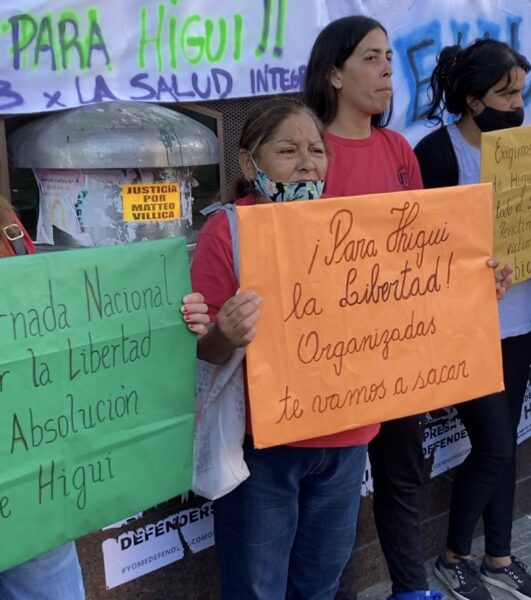 PARA HiGUi!!
x LA SALUD INTEGR
JUSTICIA
POR
MATEO
VILLICA
rnada Nacional
r la Libertad
Absolución
e Higui
¡Para Higui
la Libertad!
Organizadas
te vamos a sacar
Exigimos
de Higui
todo el
Revictim
DEFENDERS
#YOMEDEFEND
PRESA
DEFENDER